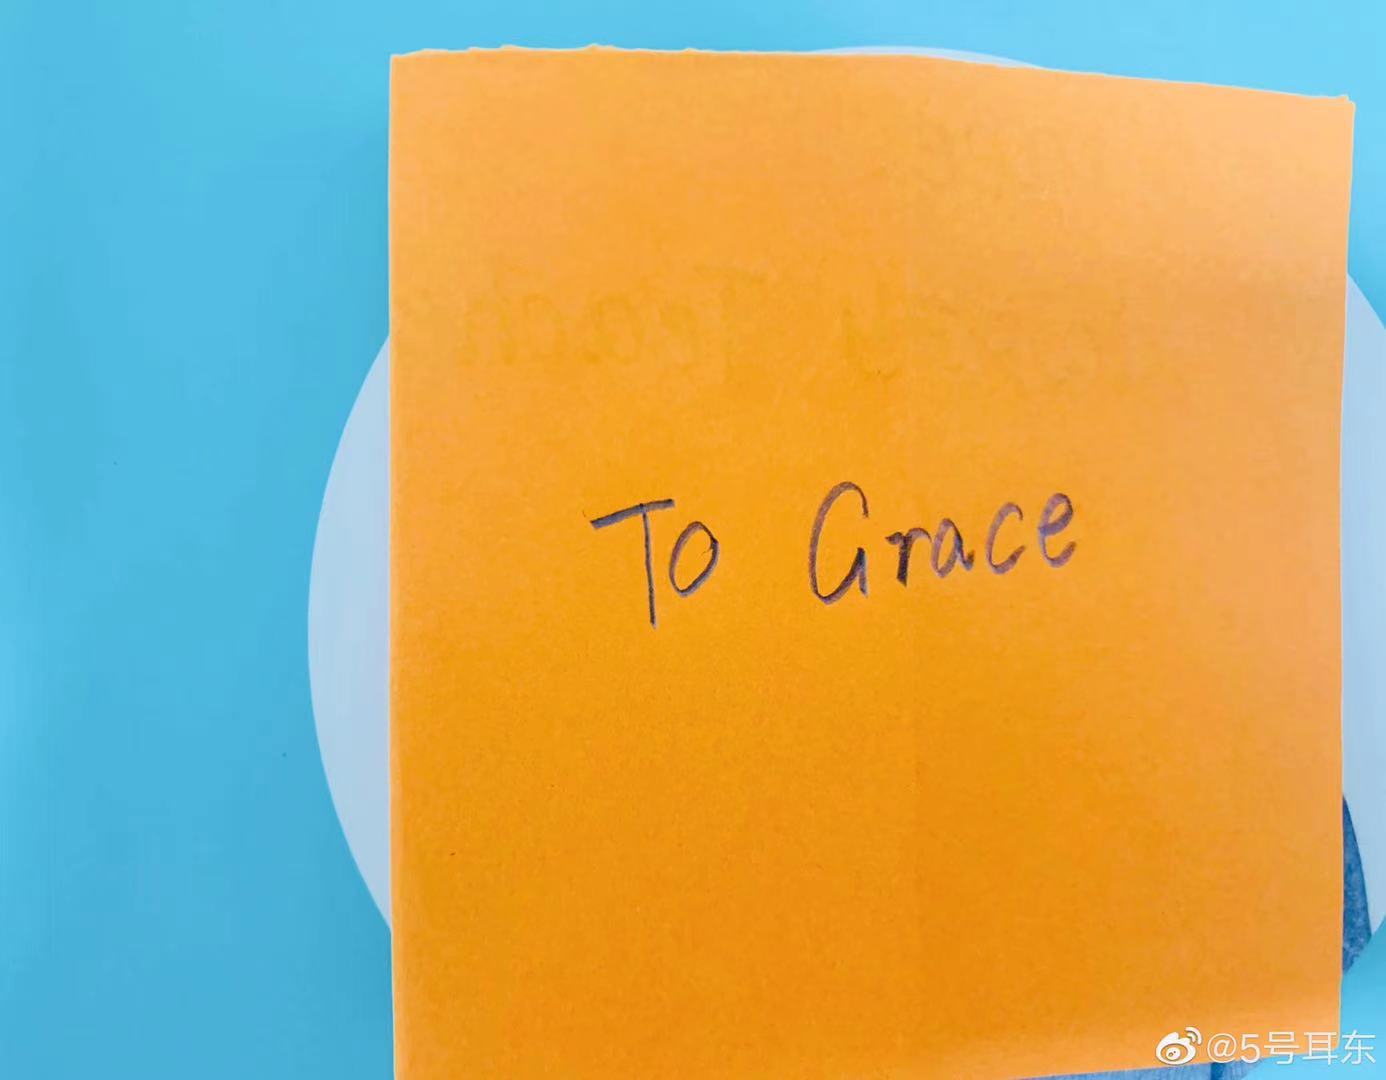 To Grace
@5号耳东